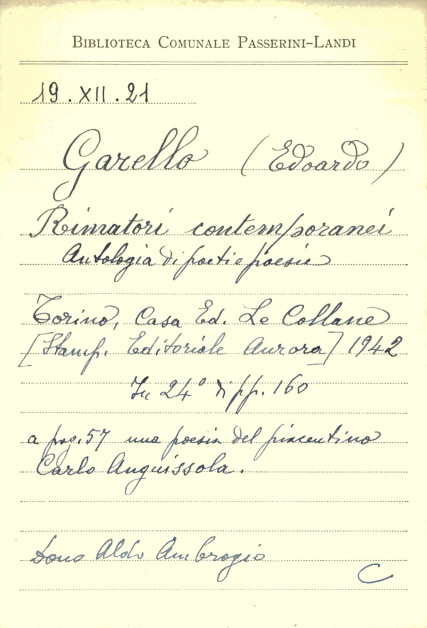 BIBLIOTECA COMUNALE PASSERINI-LANDI
19.XII.21
Garello (Edoardo)
Rimatori contemporanei
Antologia di poeti e poesie
Torino, Casa Ed. Le Collane
[Stamp. Editoriale Aurora] 1942
In 24° di pp. 160
a pag. 57 una poesia del piacentino
Carlo Anguissola.
Dono Aldo Ambrogio
C